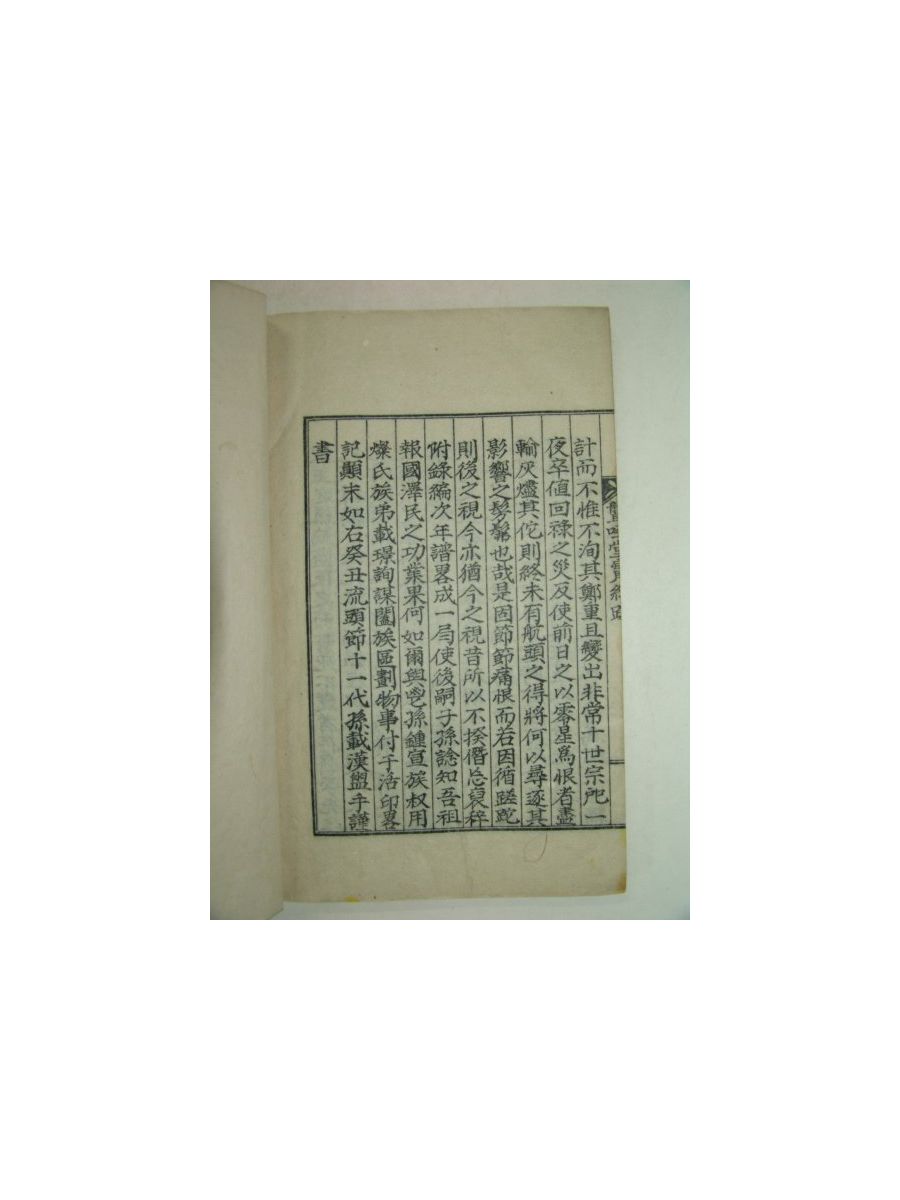 計而不惟不洵其鄭重且變出非常十世宗祀一
夜卒値回祿之災反使前日之以零星爲恨者盡
輸灰燼其佗則終未有航頭之得將何以尋逐其
影響之髣髴也哉是固節節痛恨而若因循蹉跎
則後之視今亦猶今之視昔所以不揆僭忘裒稡
附錄編次年譜畧成一局使後嗣子孫諗知吾祖
報國澤民之功業果何如爾與鬯孫鍾宣族叔用
燦氏族弟載璟詢謀闔族區劃物事付于活印畧
記顚末如右癸丑流頭節十一代孫載漢盥手謹
書